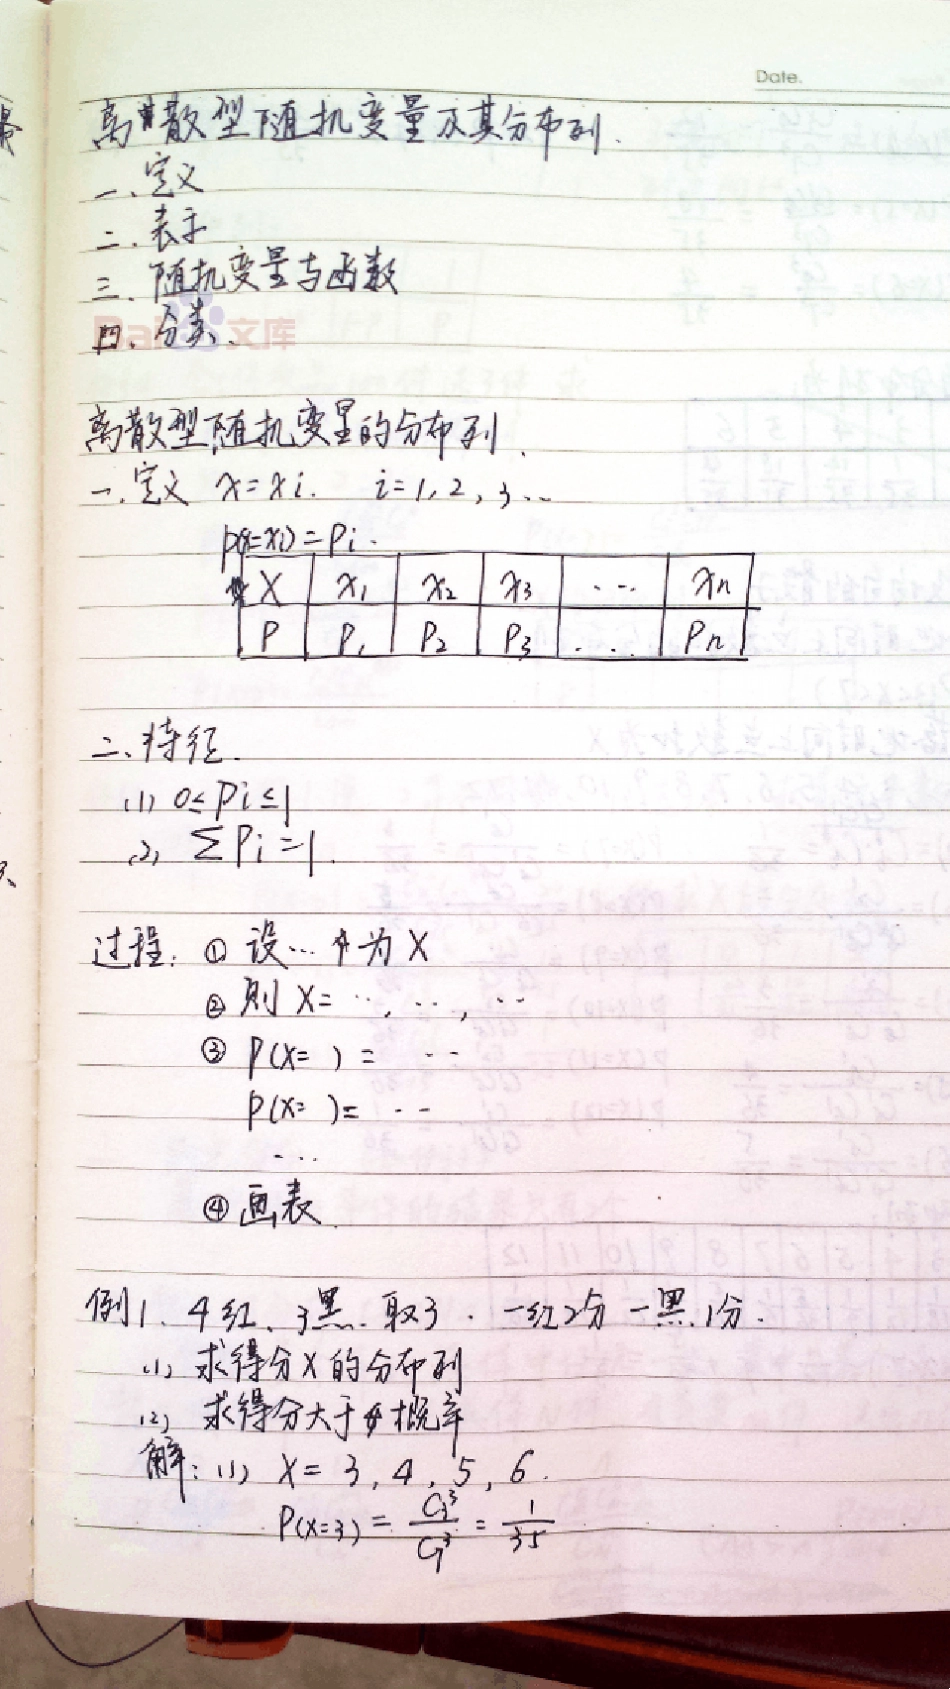 Date.
离散型随机变量及其分布列.
一、定义
二、表示
三、随机变量与函数
四、分类、
Bai 文库
离散型随机变量的分布列.
一、定义 x=xi. i=1,2,3…
p(x=xi)=Pi.
X x₁ x₂ x₃ … xn
P P₁ P₂ P₃ … Pn
二、特征.
(1) 0≤Pi≤1
(2) ΣPi=1.
过程: ① 设… 为X
② 则X=…, …, …
③ P(X= ) = …
P(X= )= …
…
④ 画表.
例1. 4红、3黑. 取3. 一红2分 一黑1分.
(1) 求得分X的分布列
(2) 求得分大于 概率
解: (1) X=3,4,5,6.
P(X=3) = C₃³/C₇³ = 1/35